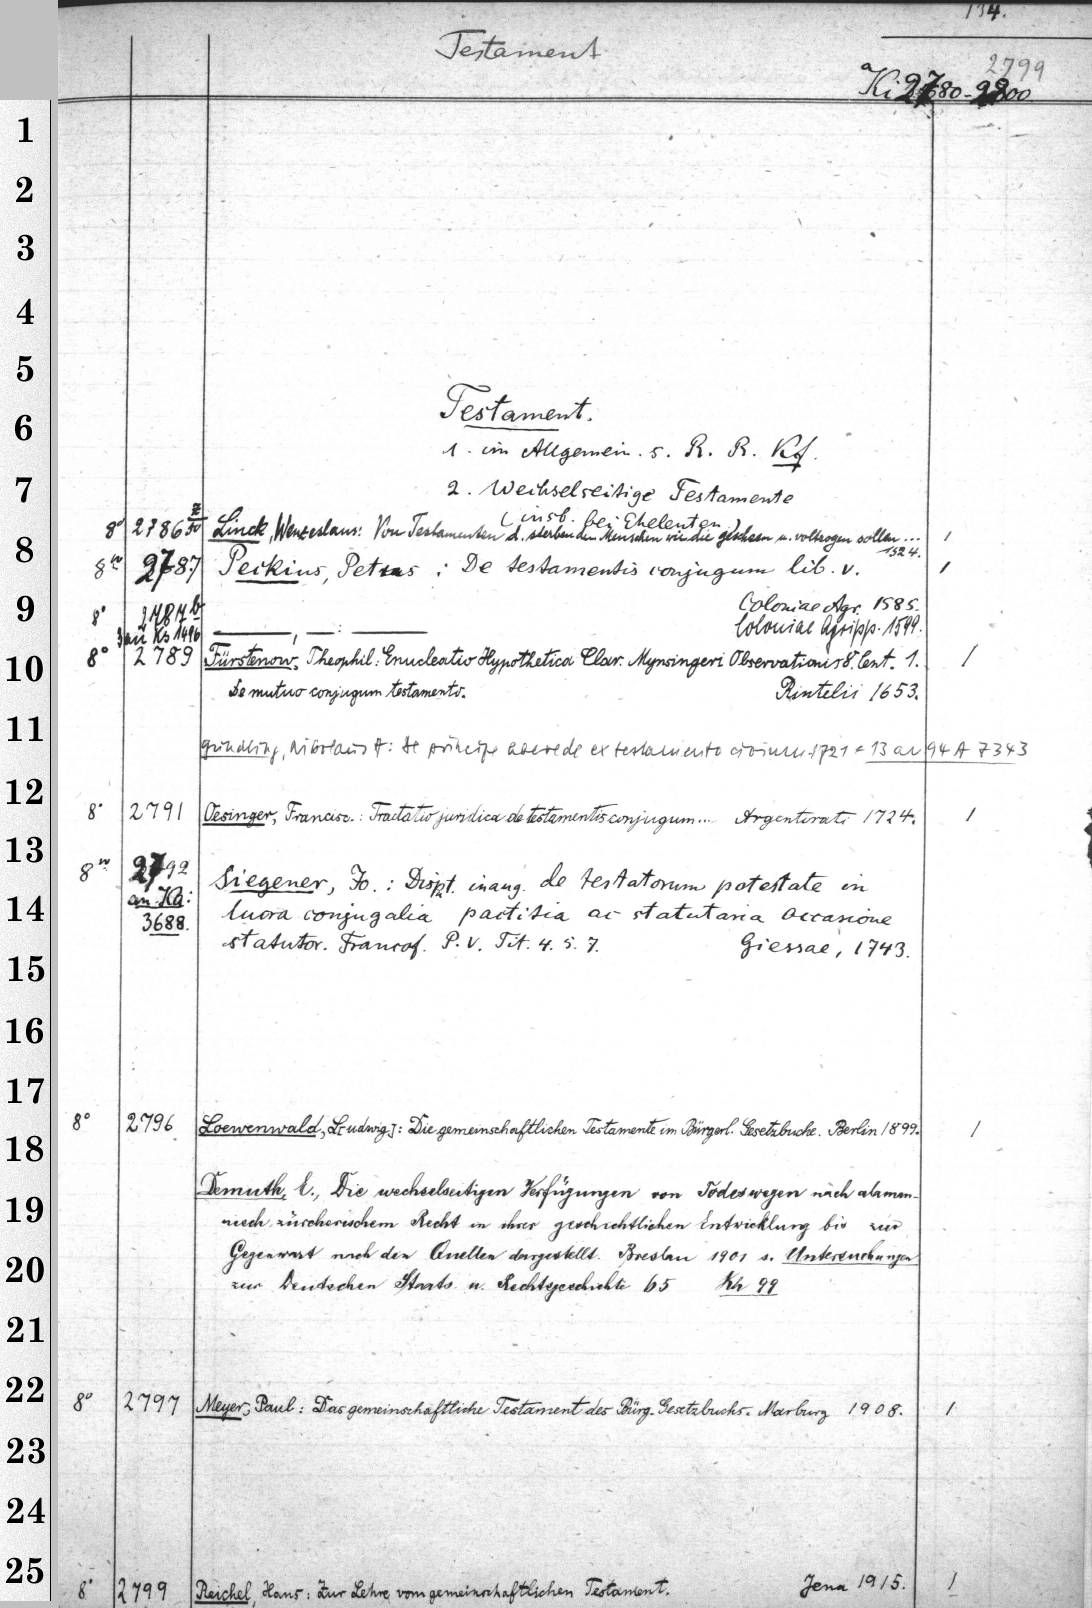 134.
Testament
2799
a Ki 2780-2800
Testament.
1. im Allgemein. s. R. R. Kf.
2. Wechselseitige Testamente
(insb. bei Eheleuten)
8° 2786 Linck, Wenzeslaus: Von Testamenten d. sterbenden Menschen wie die geschehen u. volzogen sollen ... 1
1524.
8vo 2787 Peckius, Petrus : De testamentis conjugum lib. V. 1
Coloniae Agr. 1585.
8° 2787b
3 an Ks 1496 ———, — : ——— Coloniae Agripp. 1599.
8° 2789 Fürstenow, Theophil: Enucleatio Hypothetica Clar. Mynsingeri Observationis 8. Cent. 1. 1
De mutuo conjugum testamento. Rintelii 1653.
Gundling, Nikolaus H: de principe herede ex testamento civium 1721 = 13 an 94 A 7343
8° 2791 Oesinger, Francisc.: Tractatio juridica de testamentis conjugum... Argentorati 1724. 1
8vo 2792 Siegener, Jo. : Dispt. inaug. de testatorum potestate in
an Ka: lucra conjugalia pactitia ac statutaria occasione
3688. statutor. Francof. P. V. Tit. 4. 5. 7. Giessae, 1743.
8° 2796 Loewenwald, L[udwig]: Die gemeinschaftlichen Testamente im Bürgerl. Gesetzbuche. Berlin 1899. 1
Demuth, E., Die wechselseitigen Verfügungen von Todeswegen nach alaman-
nisch zürcherischem Recht in ihrer geschichtlichen Entwicklung bis zur
Gegenwart nach den Quellen dargestellt. Breslau 1901 s. Untersuchungen
zur Deutschen Staats u. Rechtsgeschichte 65 Kh 99
8° 2797 Meyer, Paul: Das gemeinschaftliche Testament des Bürg. Gesetzbuchs. Marburg 1908. 1
8° 2799 Reichel, Hans: Zur Lehre vom gemeinschaftlichen Testament. Jena 1915. 1
1
2
3
4
5
6
7
8
9
10
11
12
13
14
15
16
17
18
19
20
21
22
23
24
25